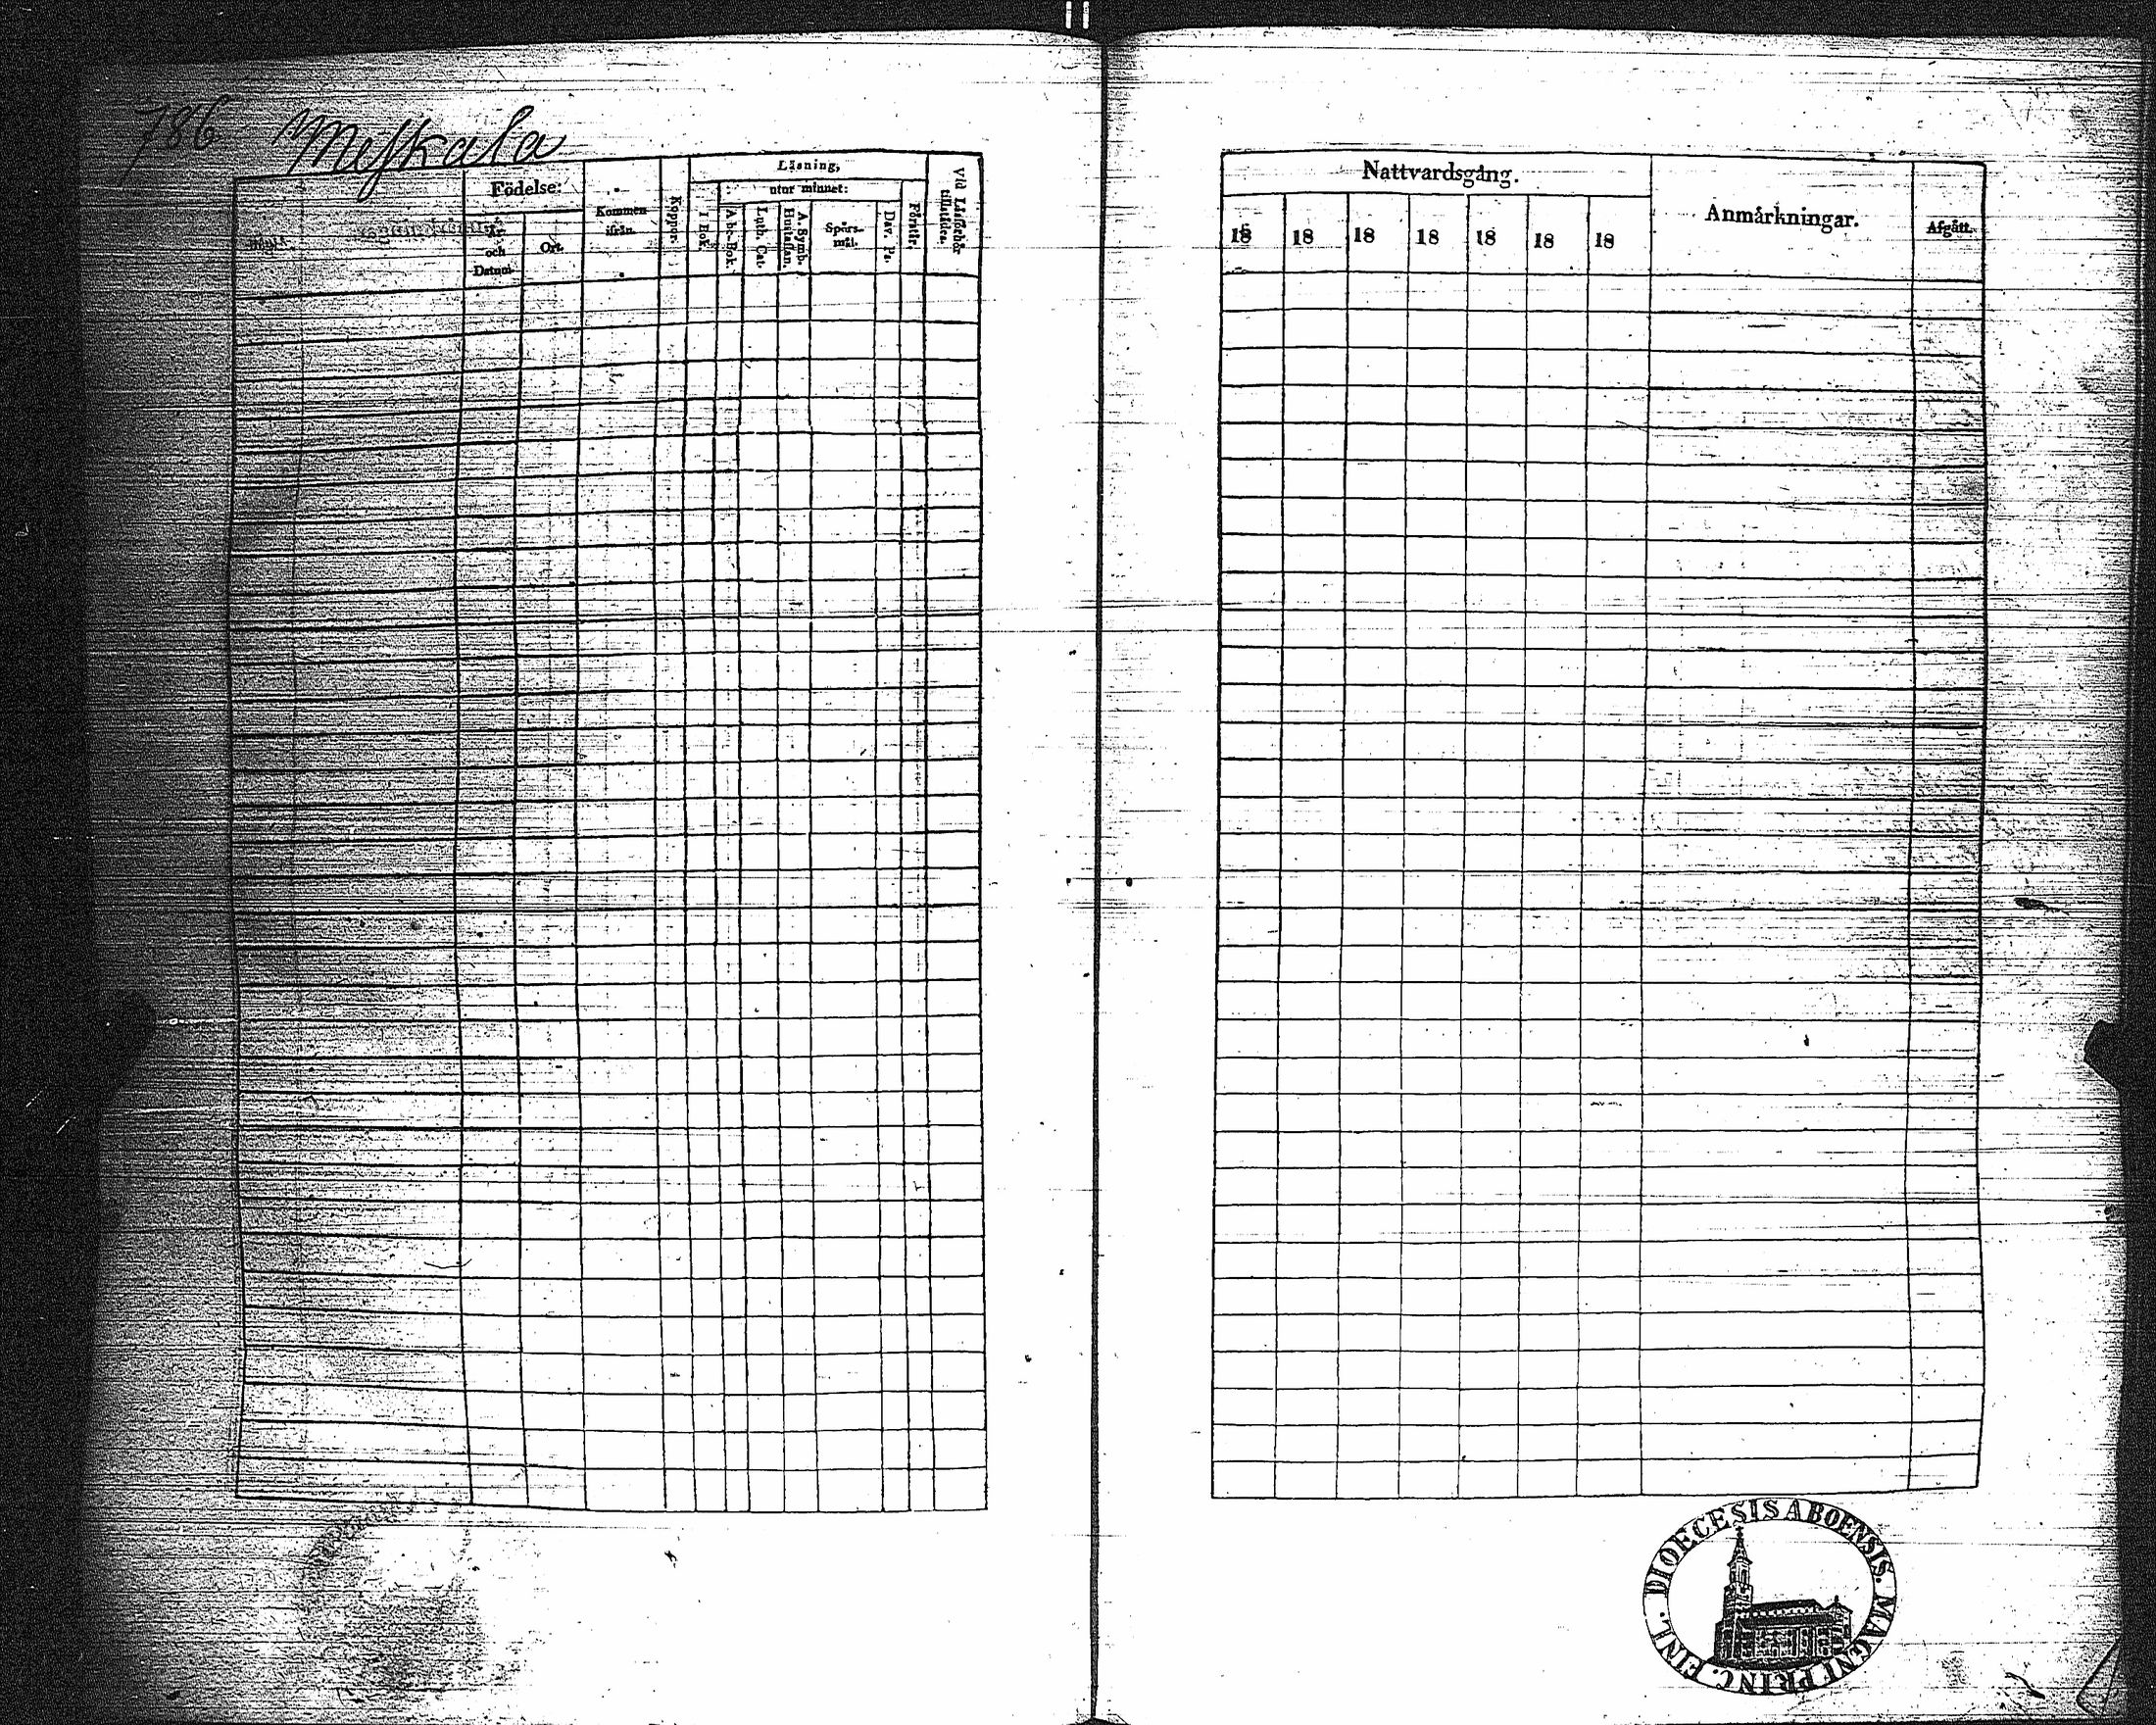 786 Meskala
Födelse:
År och Datum.
Ort.
Kommen ifrån.
Koppor.
Läsning,
utur minnet:
I Bok.
A b c Bok.
Luth. Cat.
A. Symb. Hustaflan.
Spörs-mål.
Dav. Ps.
Förstår.
Vid Läsförhör tillstädes.
Nattvardsgång.
18 18 18 18 18 18 18
Anmärkningar.
Afgått.
DIOECESIS ABOENSIS. MAGNI PRINC. FINL.